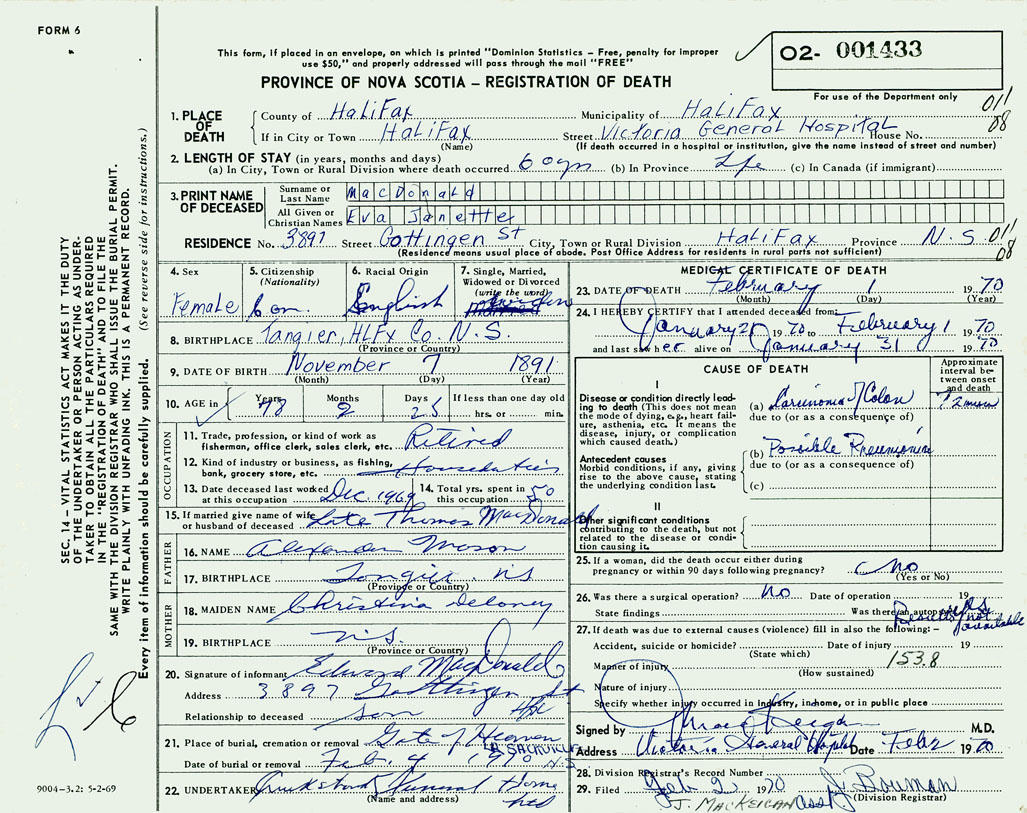 FORM 6
This form, if placed in an envelope, on which is printed "Dominion Statistics – Free, penalty for improper
use $50," and properly addressed will pass through the mail "FREE"
02- 001433
PROVINCE OF NOVA SCOTIA – REGISTRATION OF DEATH
For use of the Department only
011
08
1. PLACE OF DEATH
County of HaliFax Municipality of HaliFax
If in City or Town HaliFax Street Victoria General Hospital House No.
(Name) (If death occurred in a hospital or institution, give the name instead of street and number)
2. LENGTH OF STAY (in years, months and days)
(a) In City, Town or Rural Division where death occurred 60 yrs (b) In Province Life (c) In Canada (if immigrant)
3. PRINT NAME OF DECEASED
Surname or Last Name MacDonald
All Given or Christian Names Eva Janette
RESIDENCE No. 3897 Street Gottingen St City, Town or Rural Division HaliFax Province N.S. 011
08
(Residence means usual place of abode. Post Office Address for residents in rural parts not sufficient)
4. Sex
Female
5. Citizenship
(Nationality)
Can.
6. Racial Origin
English
7. Single, Married,
Widowed or Divorced
(write the word)
8. BIRTHPLACE Tangier, HLFx Co. N.S.
(Province or Country)
9. DATE OF BIRTH November 7 1891
(Month) (Day) (Year)
10. AGE in Years 78 Months 2 Days 25 If less than one day old
hrs. or min.
OCCUPATION
11. Trade, profession, or kind of work as
fisherman, office clerk, sales clerk, etc. Retired
12. Kind of industry or business, as fishing,
bank, grocery store, etc. Houseduties
13. Date deceased last worked
at this occupation Dec. 1969
14. Total yrs. spent in
this occupation 50
15. If married give name of wife
or husband of deceased Late Thomas MacDonald
FATHER
16. NAME Alexander Mason
17. BIRTHPLACE Tangier NS
(Province or Country)
MOTHER
18. MAIDEN NAME Christina Deloney
19. BIRTHPLACE N.S.
(Province or Country)
20. Signature of informant Edward MacDonald
Address 3897 Gottingen St
Hfx
Relationship to deceased son
21. Place of burial, cremation or removal Gate of Heaven
Lr SACKVILLE
N.S.
Date of burial or removal Feb. 4 1970
22. UNDERTAKER Cruikshank Funeral Home
Ltd
(Name and address)
MEDICAL CERTIFICATE OF DEATH
23. DATE OF DEATH February 1 1970
(Month) (Day) (Year)
24. I HEREBY CERTIFY that I attended deceased from:
January 21 1970 to February 1 1970
and last saw her alive on January 31 1970
CAUSE OF DEATH
Approximate
interval be-
tween onset
and death
I
Disease or condition directly lead-
ing to death (This does not mean
the mode of dying, e.g., heart fail-
ure, asthenia, etc. It means the
disease, injury, or complication
which caused death.)
(a) Carcinoma of Colon
due to (or as a consequence of)
Antecedent causes
Morbid conditions, if any, giving
rise to the above cause, stating
the underlying condition last.
(b) Possible Pneumonia
due to (or as a consequence of)
(c)
II
Other significant conditions
contributing to the death, but not
related to the disease or condi-
tion causing it.
25. If a woman, did the death occur either during
pregnancy or within 90 days following pregnancy? No
(Yes or No)
26. Was there a surgical operation? No Date of operation 19
State findings Was there an autopsy? yes
Results not available
27. If death was due to external causes (violence) fill in also the following:–
Accident, suicide or homicide? Date of injury 19
(State which)
153.8
Manner of injury
(How sustained)
Nature of injury
Specify whether injury occurred in Industry, in home, or in public place
Signed by M.D.
Address Victoria General Hospital Date Feb 2 1970
28. Division Registrar's Record Number
29. Filed Feb 2 1970 J. Bowman
(Division Registrar)
J. MacKEIGAN
SEC. 14 – VITAL STATISTICS ACT MAKES IT THE DUTY
OF THE UNDERTAKER OR PERSON ACTING AS UNDER-
TAKER TO OBTAIN ALL THE PARTICULARS REQUIRED
IN THE "REGISTRATION OF DEATH" AND TO FILE THE
SAME WITH THE DIVISION REGISTRAR WHO SHALL ISSUE THE BURIAL PERMIT.
WRITE PLAINLY WITH UNFADING INK. THIS IS A PERMANENT RECORD.
Every item of information should be carefully supplied. (See reverse side for instructions.)
9004-3.2: 5-2-69